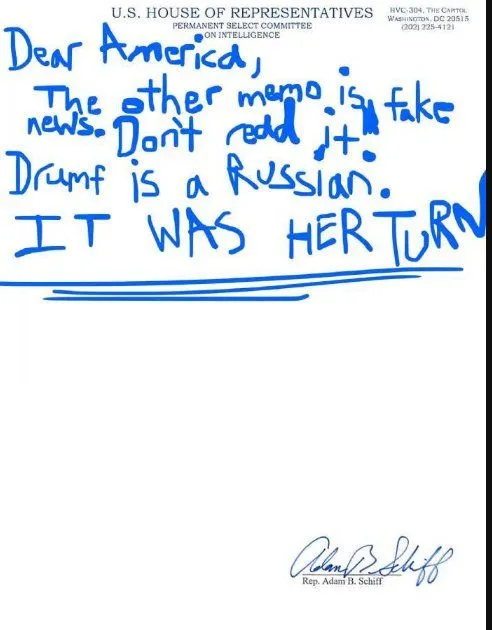 U.S. HOUSE OF REPRESENTATIVES
PERMANENT SELECT COMMITTEE
ON INTELLIGENCE
HVC-304, THE CAPITOL
WASHINGTON, DC 20515
(202) 225-4121
Dear America,
The other memo is fake
news. Don't redd it.
Drumf is a Russian.
IT WAS HER TURN
Adam B Schiff
Rep. Adam B. Schiff